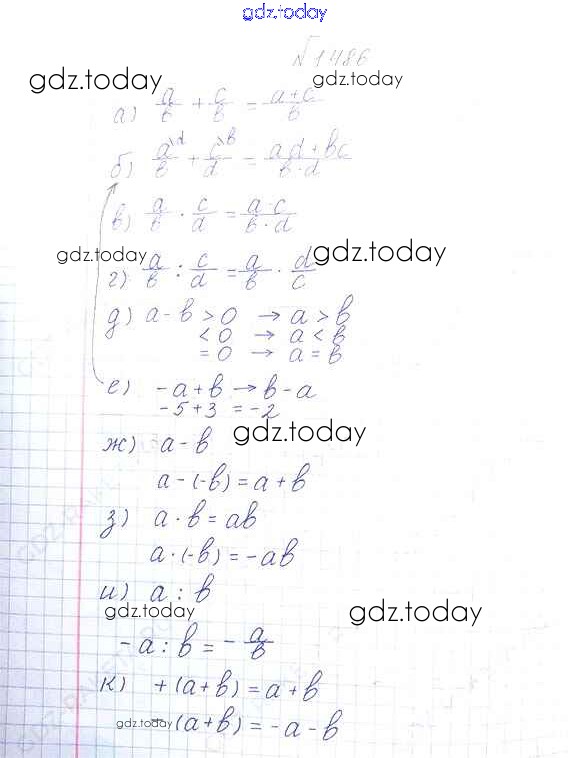 gdz.today
№1486
gdz.today gdz.today
а) a/b + c/b = a+c/b
б) a\d/b + c\b/d = ad+bc/b·d
в) a/b · c/d = a·c/b·d
gdz.today gdz.today
г) a/b : c/d = a/b · d/c
д) a-b > 0 → a > b
< 0 → a < b
= 0 → a = b
е) -a+b → b-a
-5+3 = -2
gdz.today
ж) a-b
a-(-b) = a+b
з) a·b = ab
a·(-b) = -ab
и) a : b
gdz.today gdz.today
-a : b = - a/b
к) +(a+b) = a+b
gdz.today -(a+b) = -a-b